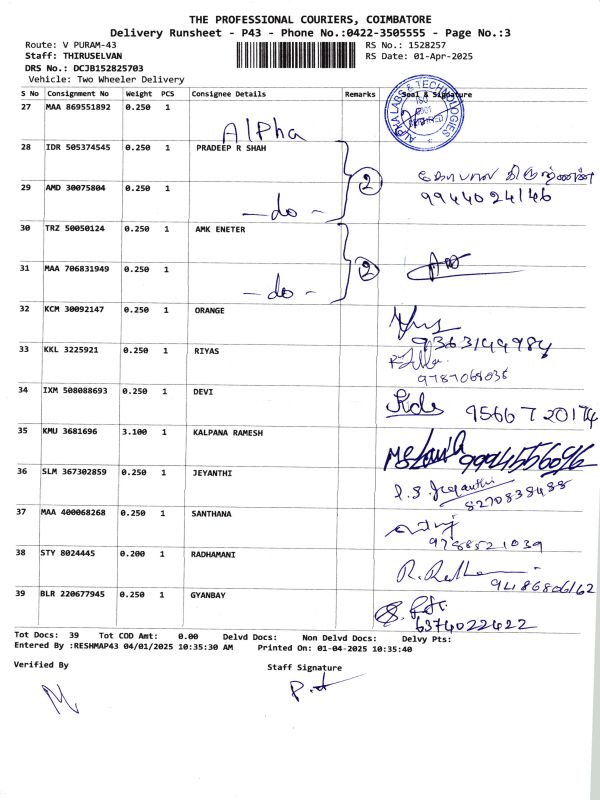 THE PROFESSIONAL COURIERS, COIMBATORE
Delivery Runsheet - P43 - Phone No.:0422-3505555 - Page No.:3
Route: V PURAM-43 RS No.: 1528257
Staff: THIRUSELVAN RS Date: 01-Apr-2025
DRS No.: DCJB152825703
Vehicle: Two Wheeler Delivery
S No Consignment No Weight PCS Consignee Details Remarks Seal & Signature
27 MAA 869551892 0.250 1 Alpha
ALPHA LABS & TECHNOLOGIES
28 IDR 505374545 0.250 1 PRADEEP R SHAH
29 AMD 30075804 0.250 1 -do- 2 9944024146
30 TRZ 50050124 0.250 1 AMK ENETER
31 MAA 706831949 0.250 1 -do- 2
32 KCM 30092147 0.250 1 ORANGE 9363144984
33 KKL 3225921 0.250 1 RIYAS
34 IXM 508088693 0.250 1 DEVI 9566720174
35 KMU 3681696 3.100 1 KALPANA RAMESH 9994556096
36 SLM 367302859 0.250 1 JEYANTHI 8270838488
37 MAA 400068268 0.250 1 SANTHANA 9788521039
38 STY 8024445 0.200 1 RADHAMANI 9486806162
39 BLR 220677945 0.250 1 GYANBAY 6374022422
Tot Docs: 39 Tot COD Amt: 0.00 Delvd Docs: Non Delvd Docs: Delvy Pts:
Entered By :RESHMAP43 04/01/2025 10:35:30 AM Printed On: 01-04-2025 10:35:40
Verified By Staff Signature